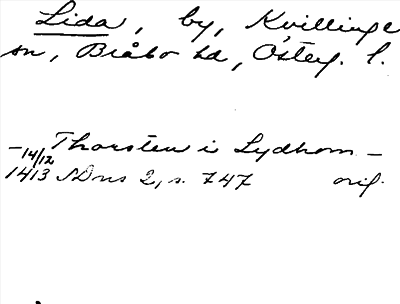 Lida, by, Kvillinge
sn, Bråbo hd, Österg. l.
– Thorsten i Lydhom –
14/12 1413 SDns 2, s. 747 orig.